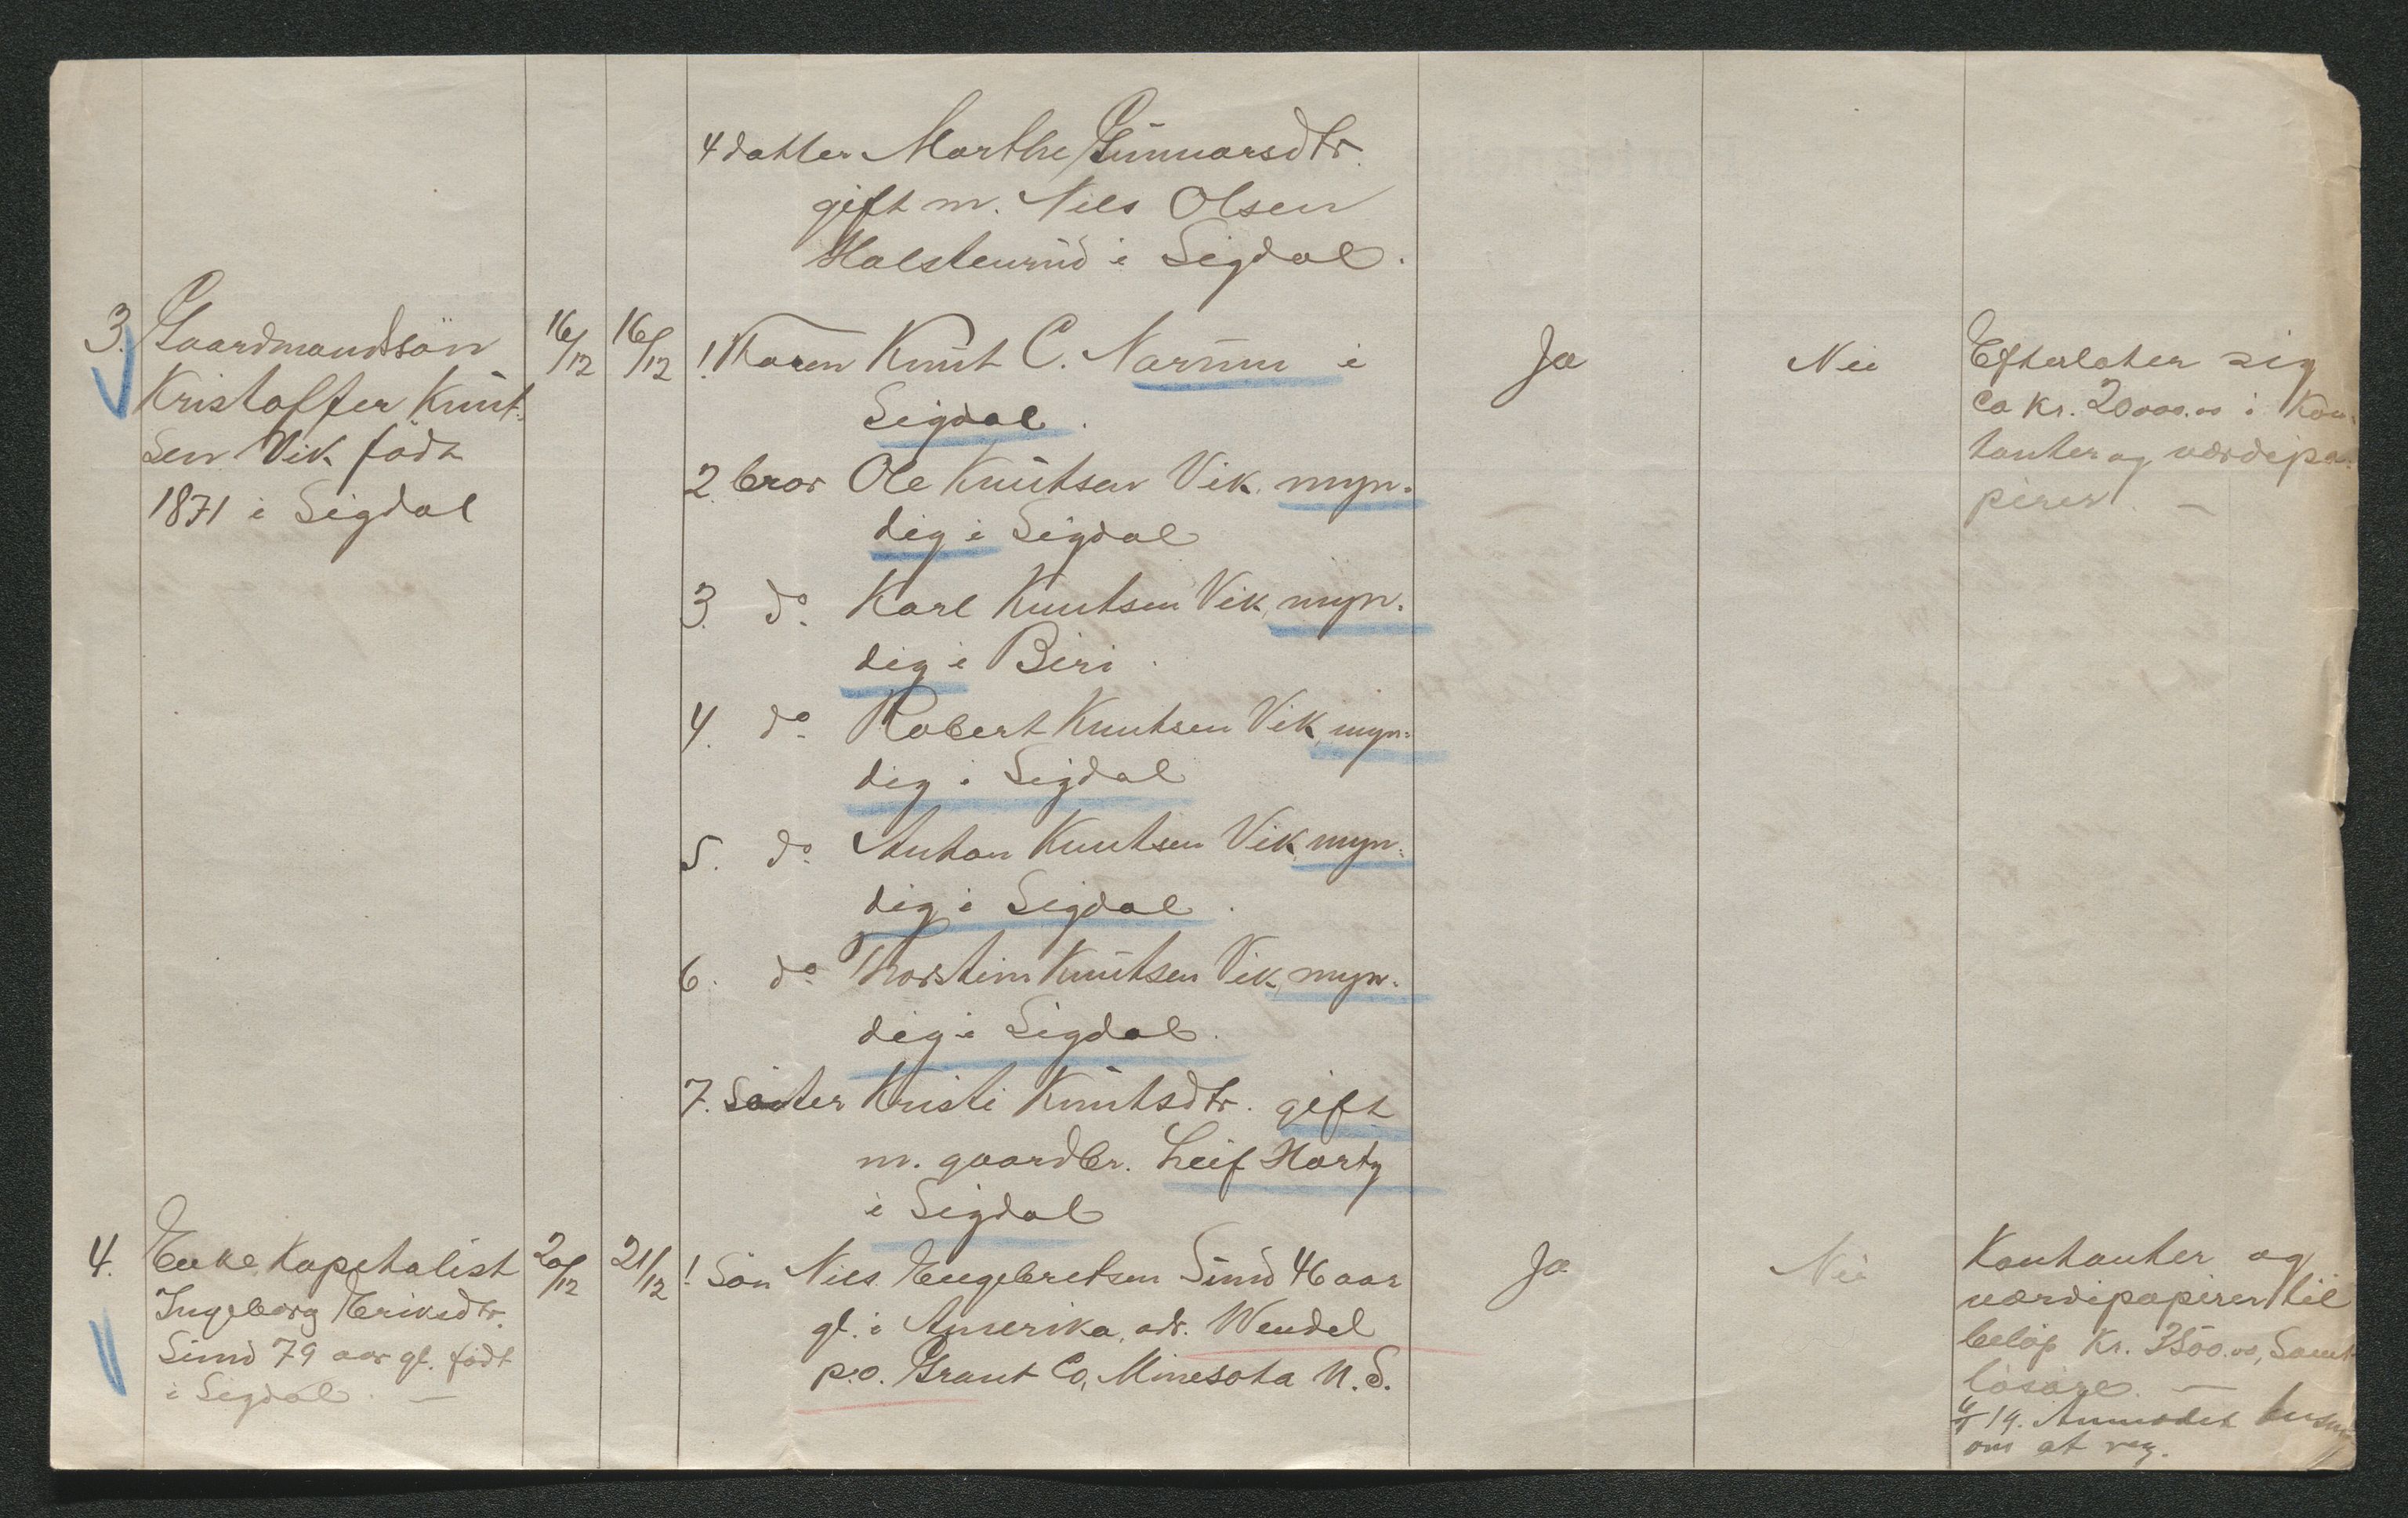 4 datter Marthe Gunnarsdtr.
gift m. Nils Olsen
Halstenrud i Sigdal.
3. Gaardmandssön
Kristoffer Knut-
sen Vik född
1871 i Sigdal
16/12 16/12
1. Faren Knut C. Narum i
Sigdal.
Ja
Nei
Efterlater sig
ca kr. 20000.00 i Kon-
tanter og værdipa-
pirer. —
2. bror Ole Knutsen Vik, myn-
dig i Sigdal
3. do. Karl Knutsen Vik, myn-
dig i Biri.
4. do Robert Knutsen Vik, myn-
dig i Sigdal
5. do Anton Knutsen Vik, myn-
dig i Sigdal.
6. do Thorstein Knutsen Vik, myn-
dig i Sigdal.
7. Söster Kristi Knutsdtr. gift
m. gaardbr. Leif Horty
i Sigdal
4. Enke Kapitalist
Ingeborg Eriksdtr.
Simd 79 aar gl. född
i Sigdal. —
20/12 21/12
1. Sön Nils Engebretsen 46 aar
gl. i Amerika, adr. Wendel
p.o. Grant Co, Minesota N.S.
Ja
Nei
Kontanter og
værdipapirer til
belöp Kr. 3500.00, Samt
lösöre. —
19. Anmodet
om at reg.